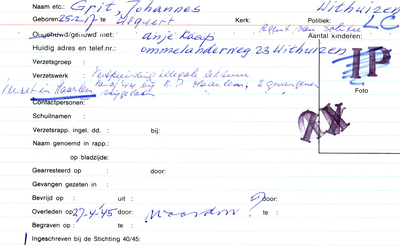 Naam etc.: Grit, Johannes Withuizen
Geboren: 25.2.17 te: Kerk: Politiek: LC
Agent van Politie
Ongehuwd/gehuwd met: Anje Kaap Aantal kinderen:
Huidig adres en telef.nr.: Ommelanderweg 23 Withuizen
Verzetsgroep :
Verzetswerk : Verspreiding illegale
Verzet in Haarlem 2 gevangenen
Contactpersonen:
Schuilnamen :
IP
Foto
Verzetsrapp. ingel. dd. : bij:
Naam genoemd in rapp.:
op bladzijde:
Gearresteerd op : door:
Gevangen gezeten in :
Bevrijd op : uit : door:
Overleden op 27-4-'45 door: te :
Begraven op : te :
Ingeschreven bij de Stichting 40/45: